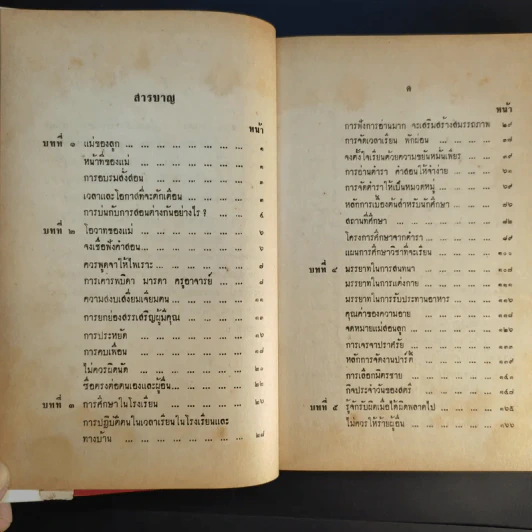 สารบาญ
หน้า
บทที่ ๑ แม่ของลูก ... ... ... ... ... ... ... ๑
หน้าที่ของแม่ ... ... ... ... ... ... ๑
การอบรมสั่งสอน ... ... ... ... ... ๑
เวลาและโอกาสที่จะตักเตือน ... ... ... ๑
การบ่นกับการสอนต่างกันอย่างไร ? ... ... ๔
บทที่ ๒ โอวาทของแม่ ... ... ... ... ... ... ๖
จงเชื่อฟังคำสอน... ... ... ... ... ๖
ควรพูดจาให้ไพเราะ ... ... ... ... ๗
การเคารพบิดา มารดา ครูอาจารย์ ... ... ๘
ความสงบเสงี่ยมเจียมตน ... ... ... ... ๑๑
การยกย่องสรรเสริญผู้มีคุณ ... ... ... ๑๓
การประหยัด ... ... ... ... ... ๑๖
การคบเพื่อน ... ... ... ... ... ๑๘
ไม่ควรผิดนัด ... ... ... ... ... ๒๐
ซื่อตรงต่อตนเองและผู้อื่น... ... ... ... ๒๒
บทที่ ๓ การศึกษาในโรงเรียน ... ... ... ... ๒๖
การปฏิบัติตนในเวลาเรียนในโรงเรียนและ
ทางบ้าน ... ... ... ... ... ๒๘
ค
หน้า
การฟังการอ่านมาก จะเสริมสร้างสมรรถภาพ ๒๙
การจัดเวลาเรียน พักผ่อน ... ...
จงตั้งใจเรียนด้วยความขยันหมั่นเพียร
การอ่านตำรา คำสอนให้จำง่าย ... ๖๑
การจัดตำราให้เป็นหมวดหมู่ ...
หลักการเบื้องต้นสำหรับนักศึกษา ...
สถานที่ศึกษา ... ... ...
โครงการศึกษาจากตำรา ... ... ๘๙
แผนการศึกษาวิชาที่จะเรียน ... ... ๑๐๐
บทที่ ๔ มรรยาทในการสนทนา ... ...
มรรยาทในการแต่งกาย ... ...
มรรยาทในการรับประทานอาหาร ...
คุณค่าของความอาย ... ...
จดหมายแม่สอนลูก ... ...
การเจรจาปราศรัย ... ...
หลักการจัดงานปาร์ตี้ ... ...
การเลือกมิตรชาย ... ... ๑๔๑
กิจประจำวันของสตรี ... ...
บทที่ ๕ รู้จักรับผิดเมื่อได้ผิดพลาดไป ... ... ๑๖๕
ไม่ควรให้ร้ายผู้อื่น ... ... ๑๖๖